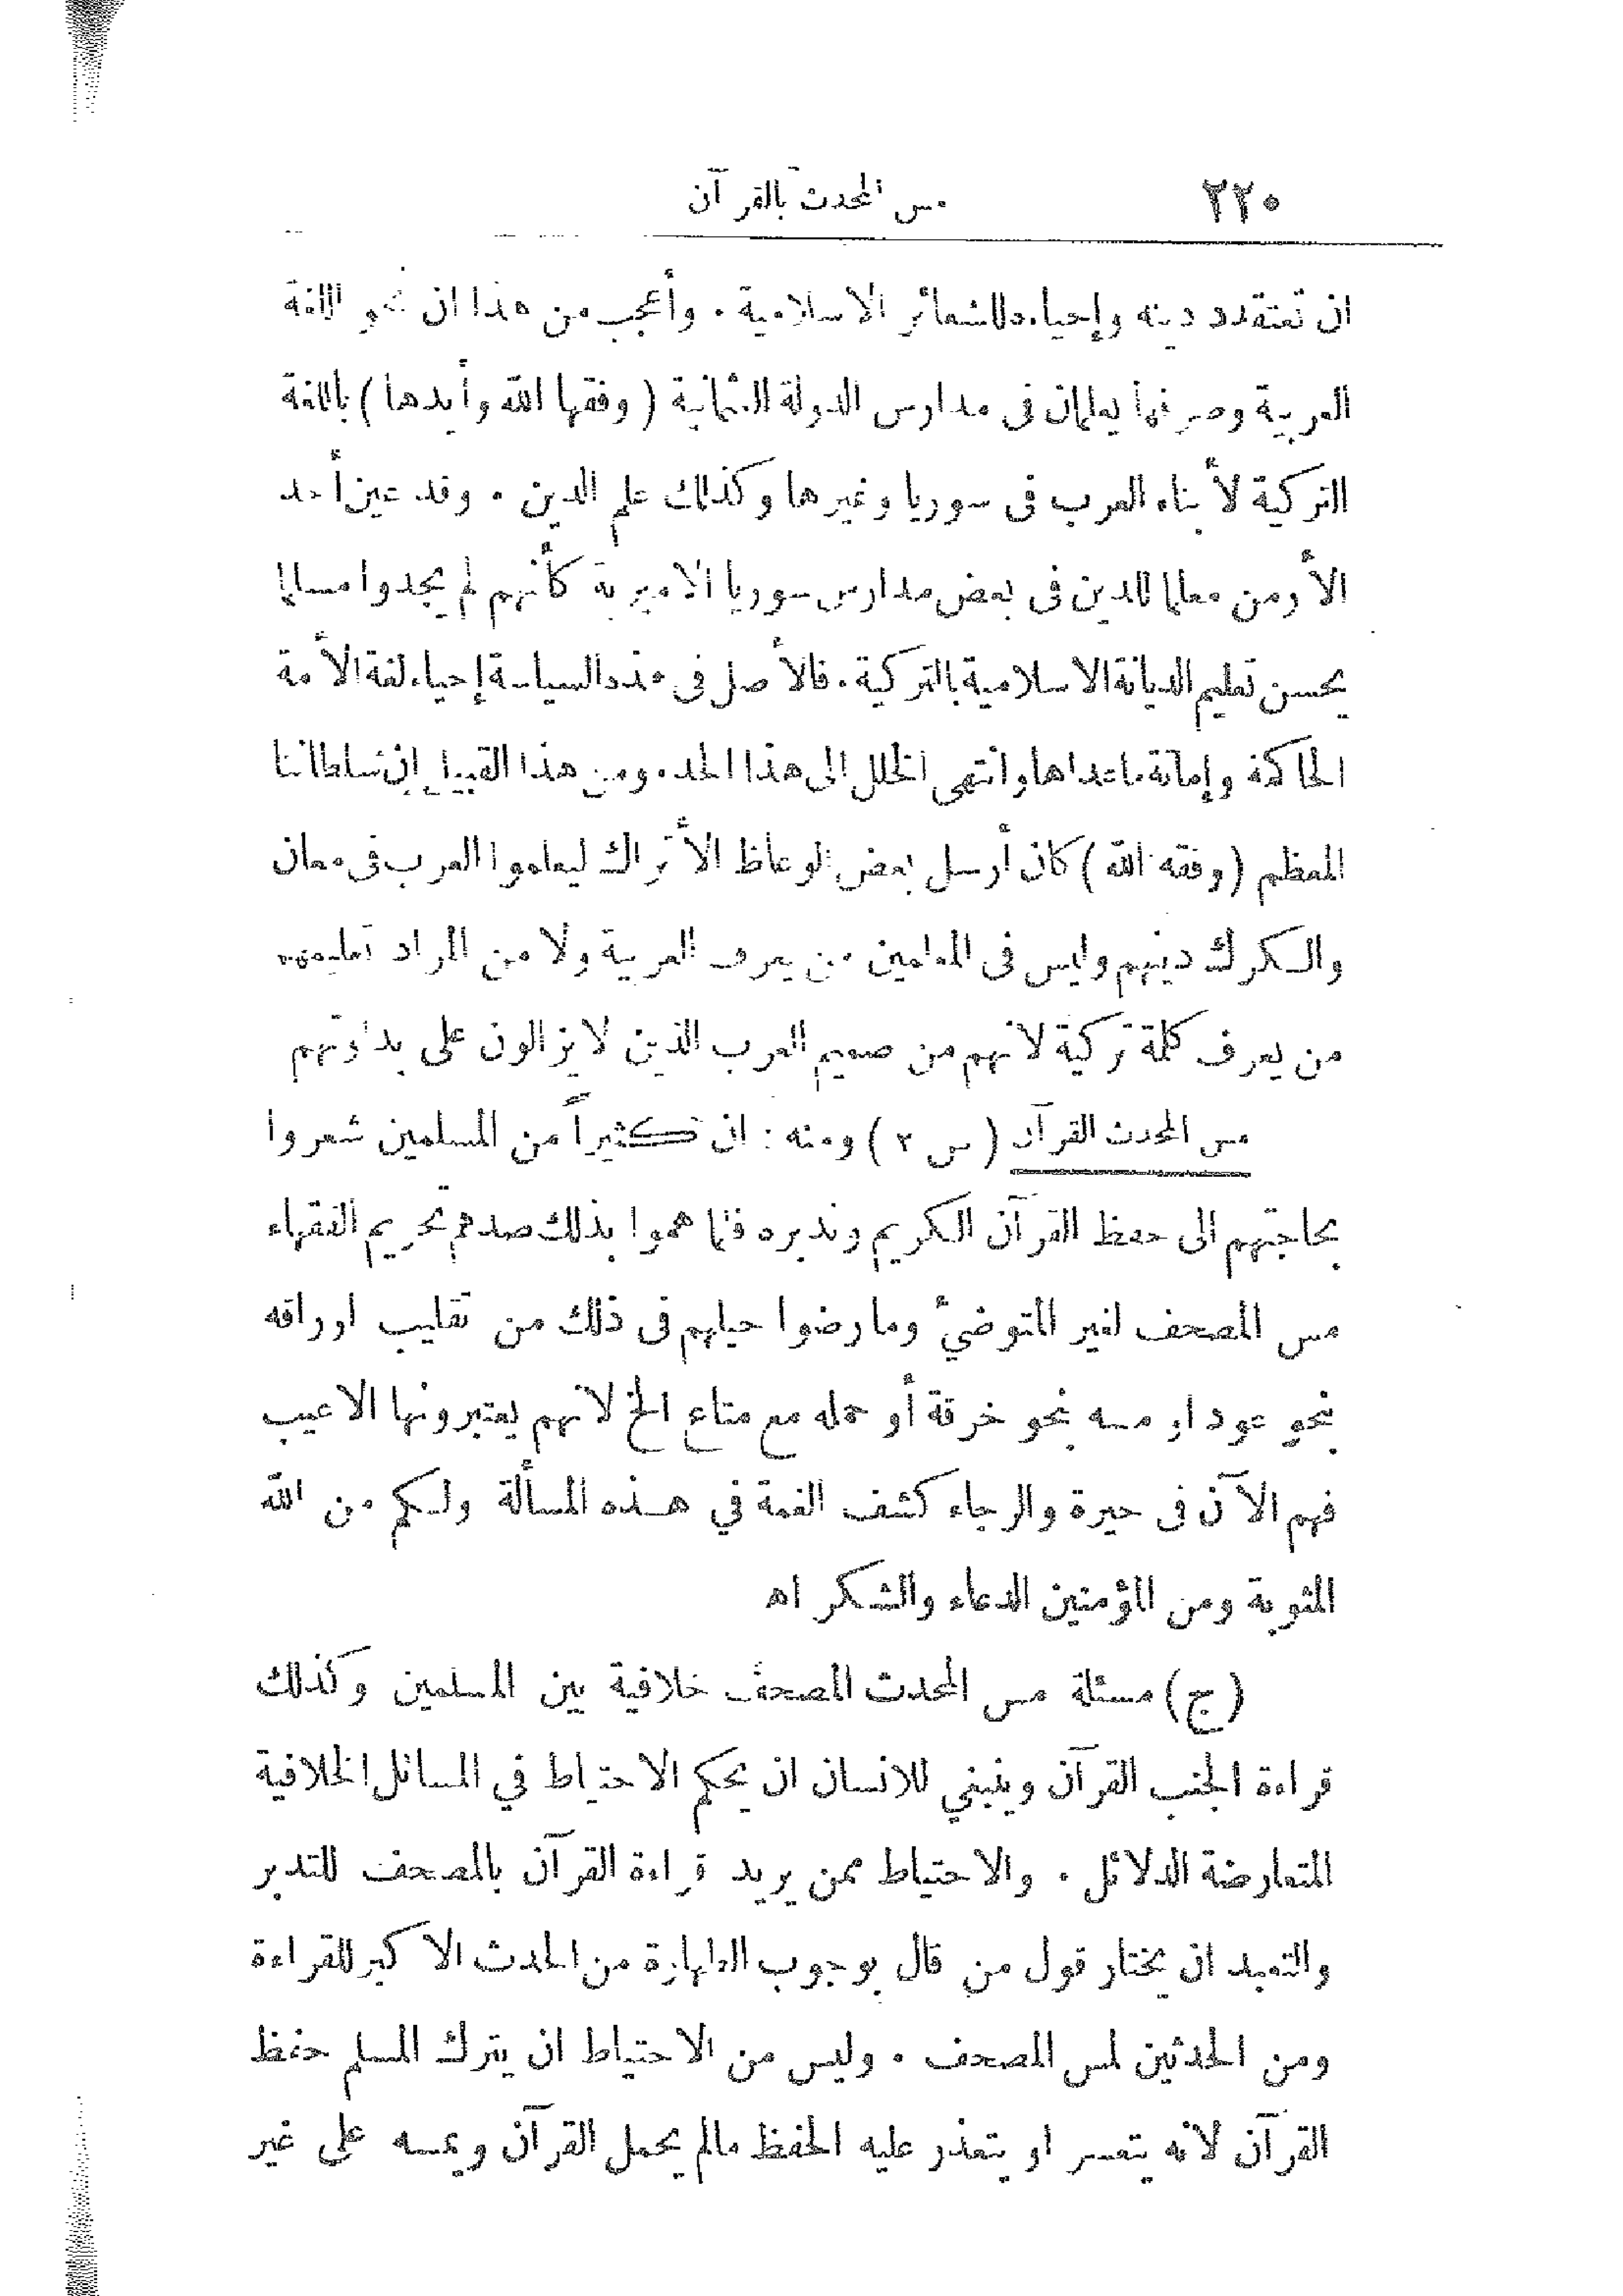 ٢٢٠ مس المحدث بالقرآن
ان تعتقده دينه وإحياء للشعائر الاسلامية . وأعجب من هذا ان نحو اللغة
العربية وصرفها يعلمان فى مدارس الدولة العثمانية ( وفقها الله وأيدها ) باللغة
التركية لأبناء العرب فى سوريا وغيرها وكذلك علم الدين . وقد عين أحد
الأرمن معلما للدين فى بعض مدارس سوريا الاميرية كأنهم لم يجدوا مسلما
يحسن تعليم الديانة الاسلامية بالتركية . فالأصل فى هذه السياسة إحياء لغة الأمة
الحاكمة وإماتة ماعداها وانتهى الخلل الى هذا الحد . ومن هذا القبيل إن سلطاننا
المعظم ( وفقه الله ) كان أرسل بعض الوعاظ الأتراك ليعلموا العرب فى معان
والكرك دينهم وليس فى المعلمين من يعرف العربية ولا من المراد تعليمهم
من يعرف كلمة تركية لانهم من صميم العرب الذين لا يزالون على بداوتهم
مس المحدث القرآن ( س ٢ ) ومنه : ان كثيراً من المسلمين شعروا
بحاجتهم الى حفظ القرآن الكريم وتدبره فلما هموا بذلك صدهم تحريم الفقهاء
مس المصحف لغير المتوضئ وما رضوا حيلهم فى ذلك من تقليب اوراقه
بنحو عود او مسه بنحو خرقة أو حمله مع متاع الخ لانهم يعتبرونها الاعيب
فهم الآن فى حيرة والرجاء كشف الغمة في هذه المسألة ولكم من الله
المثوبة ومن المؤمنين الدعاء والشكر اه
( ج ) مسئلة مس المحدث المصحف خلافية بين المسلمين وكذلك
قراءة الجنب القرآن وينبغي للانسان ان يحكم الاحتياط في المسائل الخلافية
المتعارضة الدلائل . والاحتياط ممن يريد قراءة القرآن بالمصحف للتدبر
والتعبد ان يختار قول من قال بوجوب الطهارة من الحدث الاكبر للقراءة
ومن الحدثين لمس المصحف . وليس من الاحتياط ان يترك المسلم حفظ
القرآن لانه يتعسر او يتعذر عليه الحفظ مالم يحمل القرآن ويمسه على غير